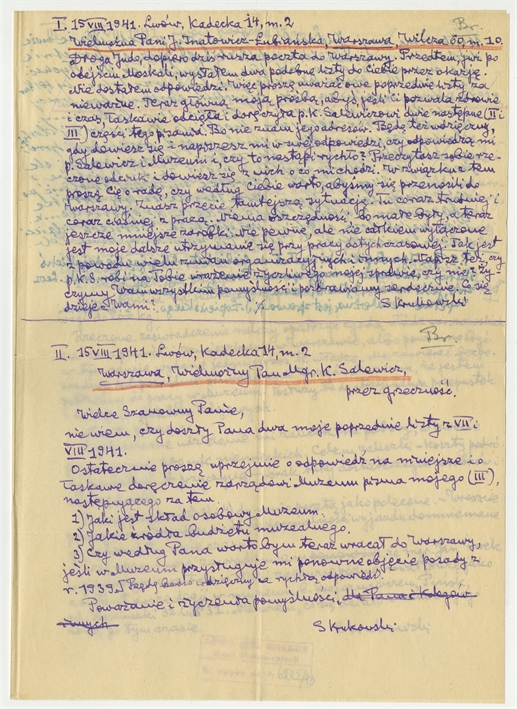 Br.
I. 15 VIII 1941. Lwów, Kadecka 14, m. 2
Wielmożna Pani J. Inatowicz-Łubiańska, Warszawa, Wilcza 60, m. 10.
Droga Judo, dopiero dziś rusza poczta do Warszawy. Przedtem, już po
odejściu Moskali, wysłałem dwa podobne listy do Ciebie przez okazję.
Nie dostałem odpowiedzi. Więc proszę uważać owe poprzednie listy za
nieważne. Teraz główna moja prośba, abyś jeśli Ci pozwala zdrowie
i czas, łaskawie odcięła i doręczyła p. K. Salewiczowi dwie następne (II i
III) części tego prawd. Bo nie znam jego adresów. Będę też wdzięczny,
gdy dowiesz się i napiszesz mi w swej odpowiedzi, czy odpowiedzą mi
p. Salewicz i Muzeum i, czy to nastąpi rychło? Przeczytasz sobie rze-
czone odcinki i dowiesz się z nich o co mi chodzi. W związku z tem
proszę Cię o radę, czy według Ciebie warto, abyśmy się przenosili do
Warszawy. Znasz przecie tamtejszą sytuację. Tu coraz trudniej i
coraz ciaśniej z pracą. Niema oszczędności. Bo małe były, a teraz
jeszcze mniejsze zarobki. Nie pewne, ale nie całkiem wyłączone
jest moje dalsze utrzymanie się przy pracy dotychczasowej. Tak jest
z powodu wielu zmian organizacyjnych i innych. Napisz też, czy
p. K. S. robi na Tobie wrażenie życzliwego mojej sprawie, czy nie? Ży-
czymy Wam wszystkim pomyślności i pozdrawiamy serdecznie. Co się
dzieje z Wami?
S Krukowski
Br.
II. 15 VIII 1941. Lwów, Kadecka 14, m. 2
Warszawa, Wielmożny Pan Mgr. K. Salewicz,
przez grzeczność.
Wielce Szanowny Panie,
nie wiem, czy doszły Pana dwa moje poprzednie listy z VII i
VIII 1941.
Ostatecznie proszę uprzejmie o odpowiedź na niniejsze i o
łaskawe doręczenie zarządowi Muzeum pisma mojego (III),
następującego za tem.
1) Jaki jest skład osobowy Muzeum.
2) Jakie źródła budżetu muzealnego.
3) Czy według Pana warto bym teraz wracał do Warszawy,
jeśli w Muzeum przysługuje mi ponowne objęcie posady z
r. 1939. Będę bardzo wdzięczny za rychłą odpowiedź.
Poważanie i życzenia pomyślności, dla Pana i Kolegów
innych
S Krukowski